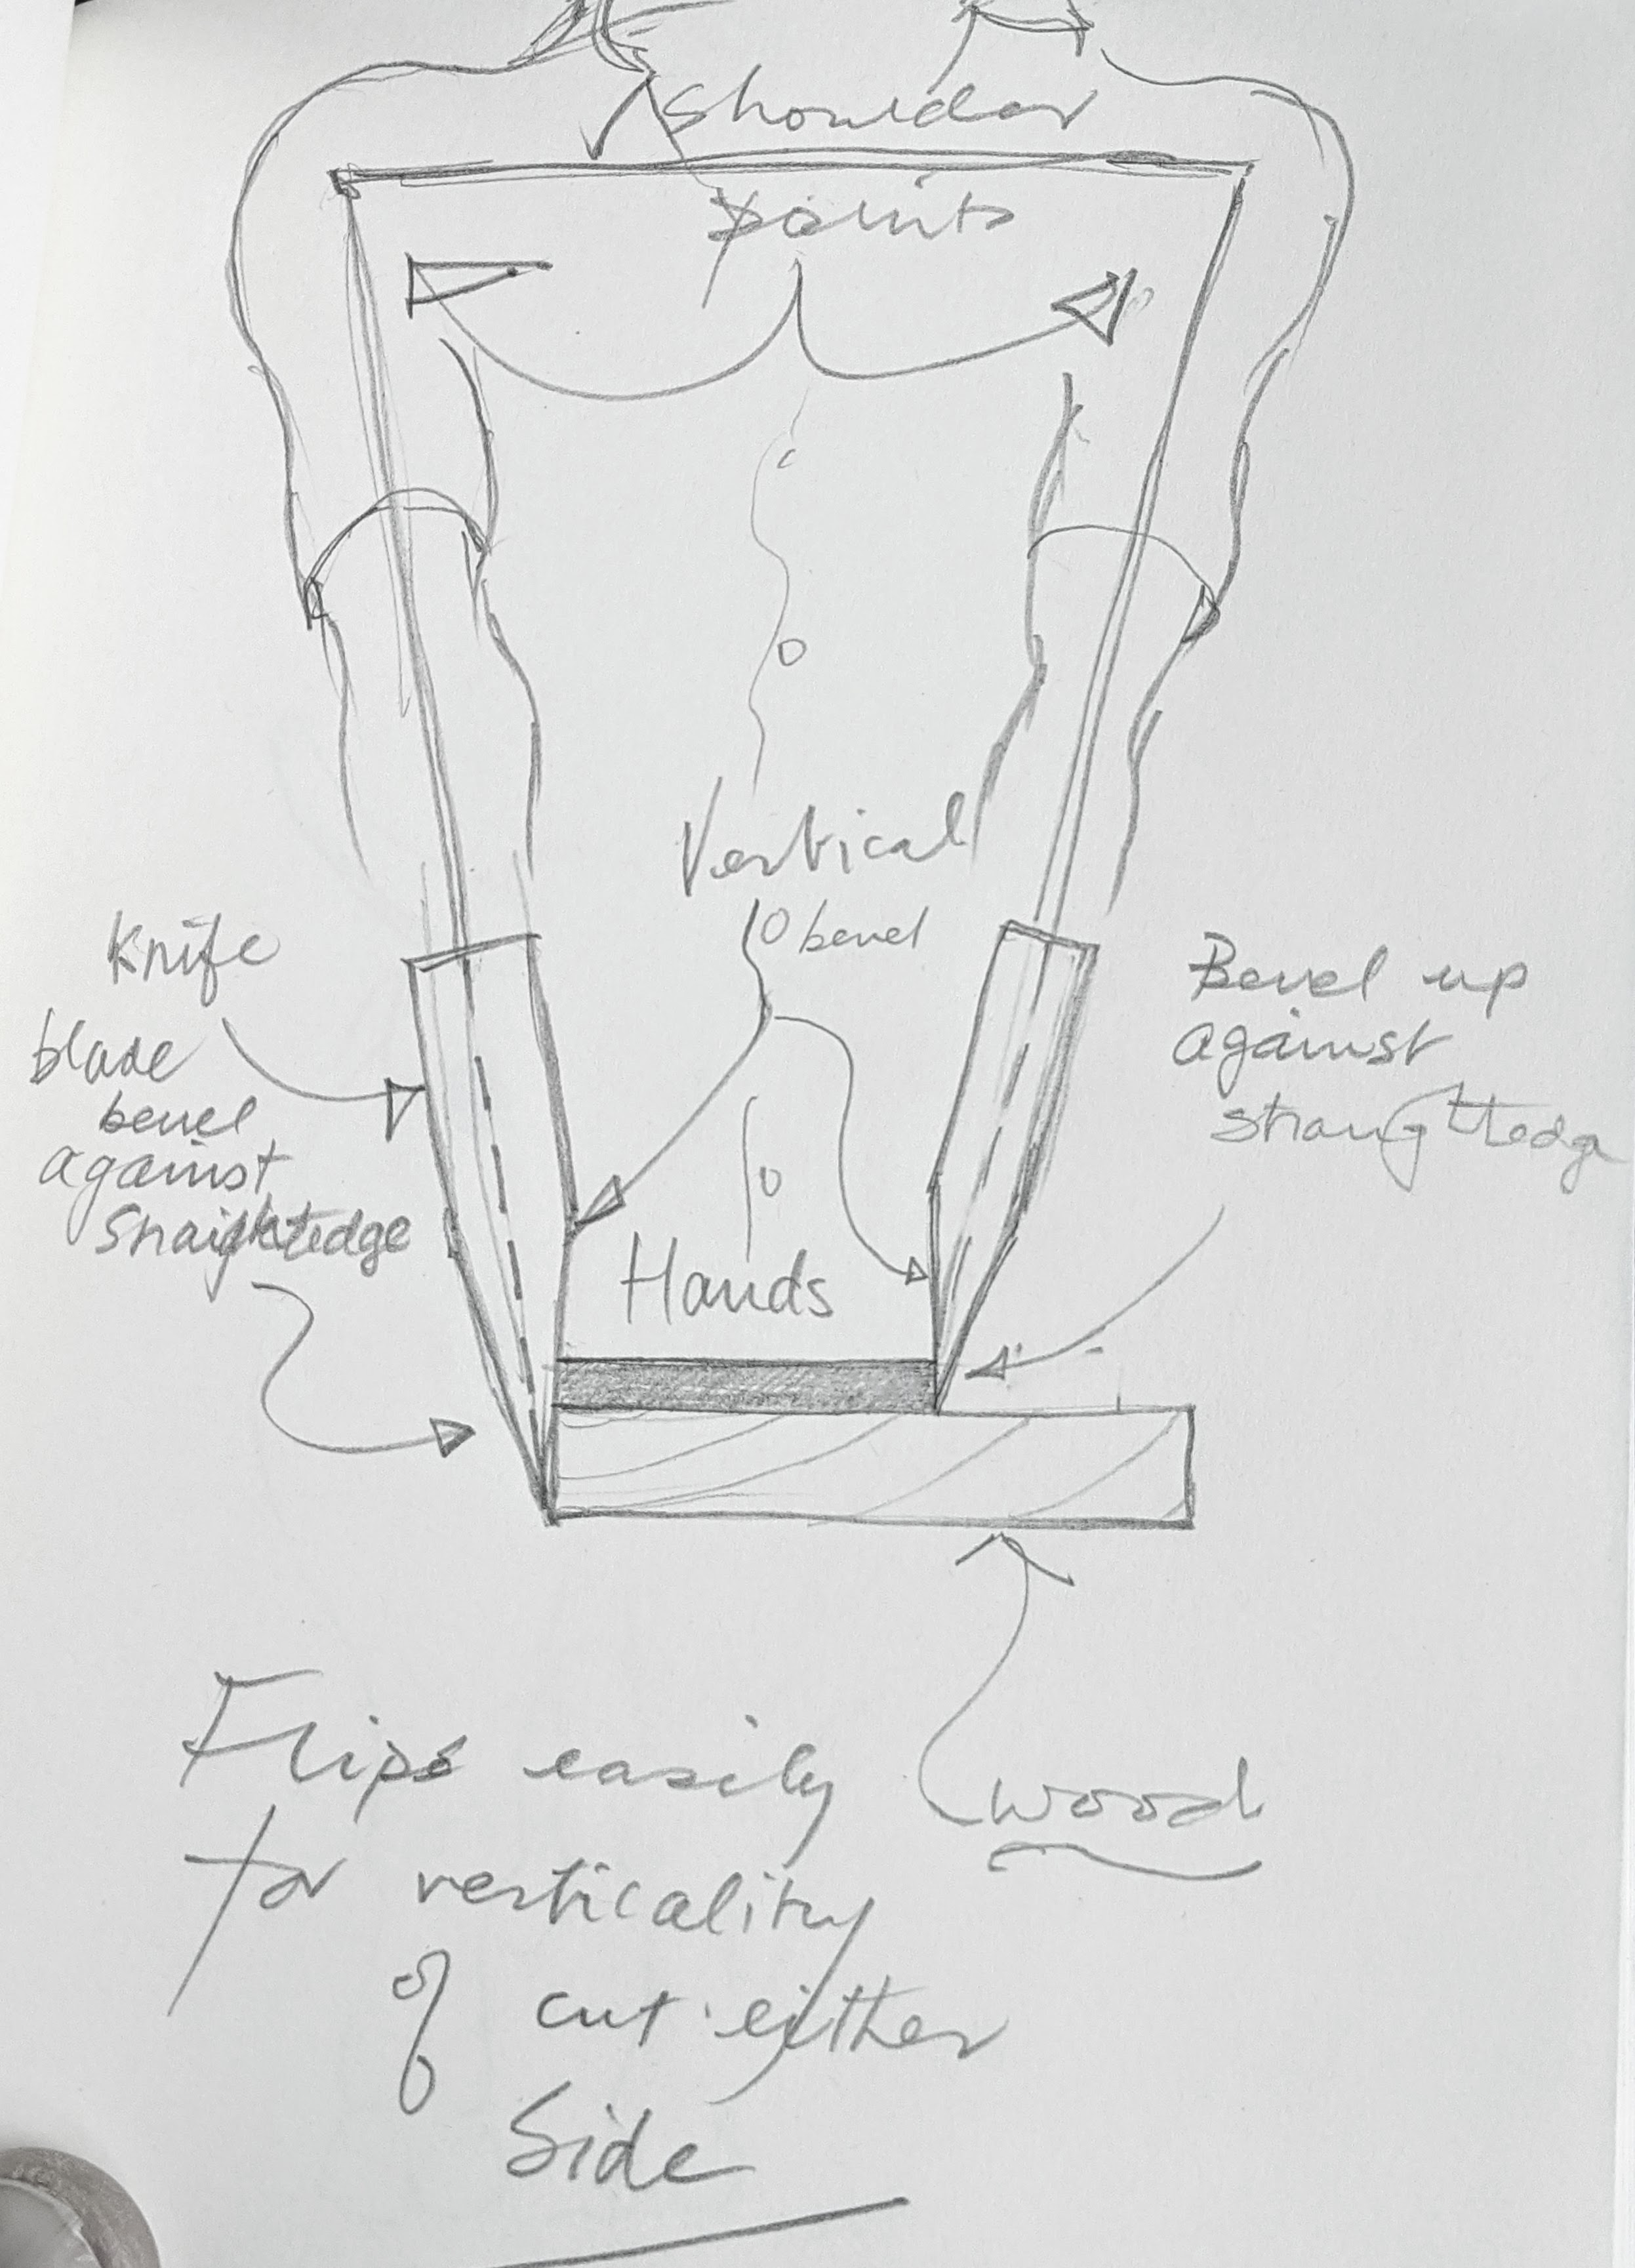 Shoulder
points
Vertical
bevel
Knife
blade
bevel
against
Straightedge
Bevel up
against
straightedge
Hands
Flips easily
for verticality
of cut either
Side
wood